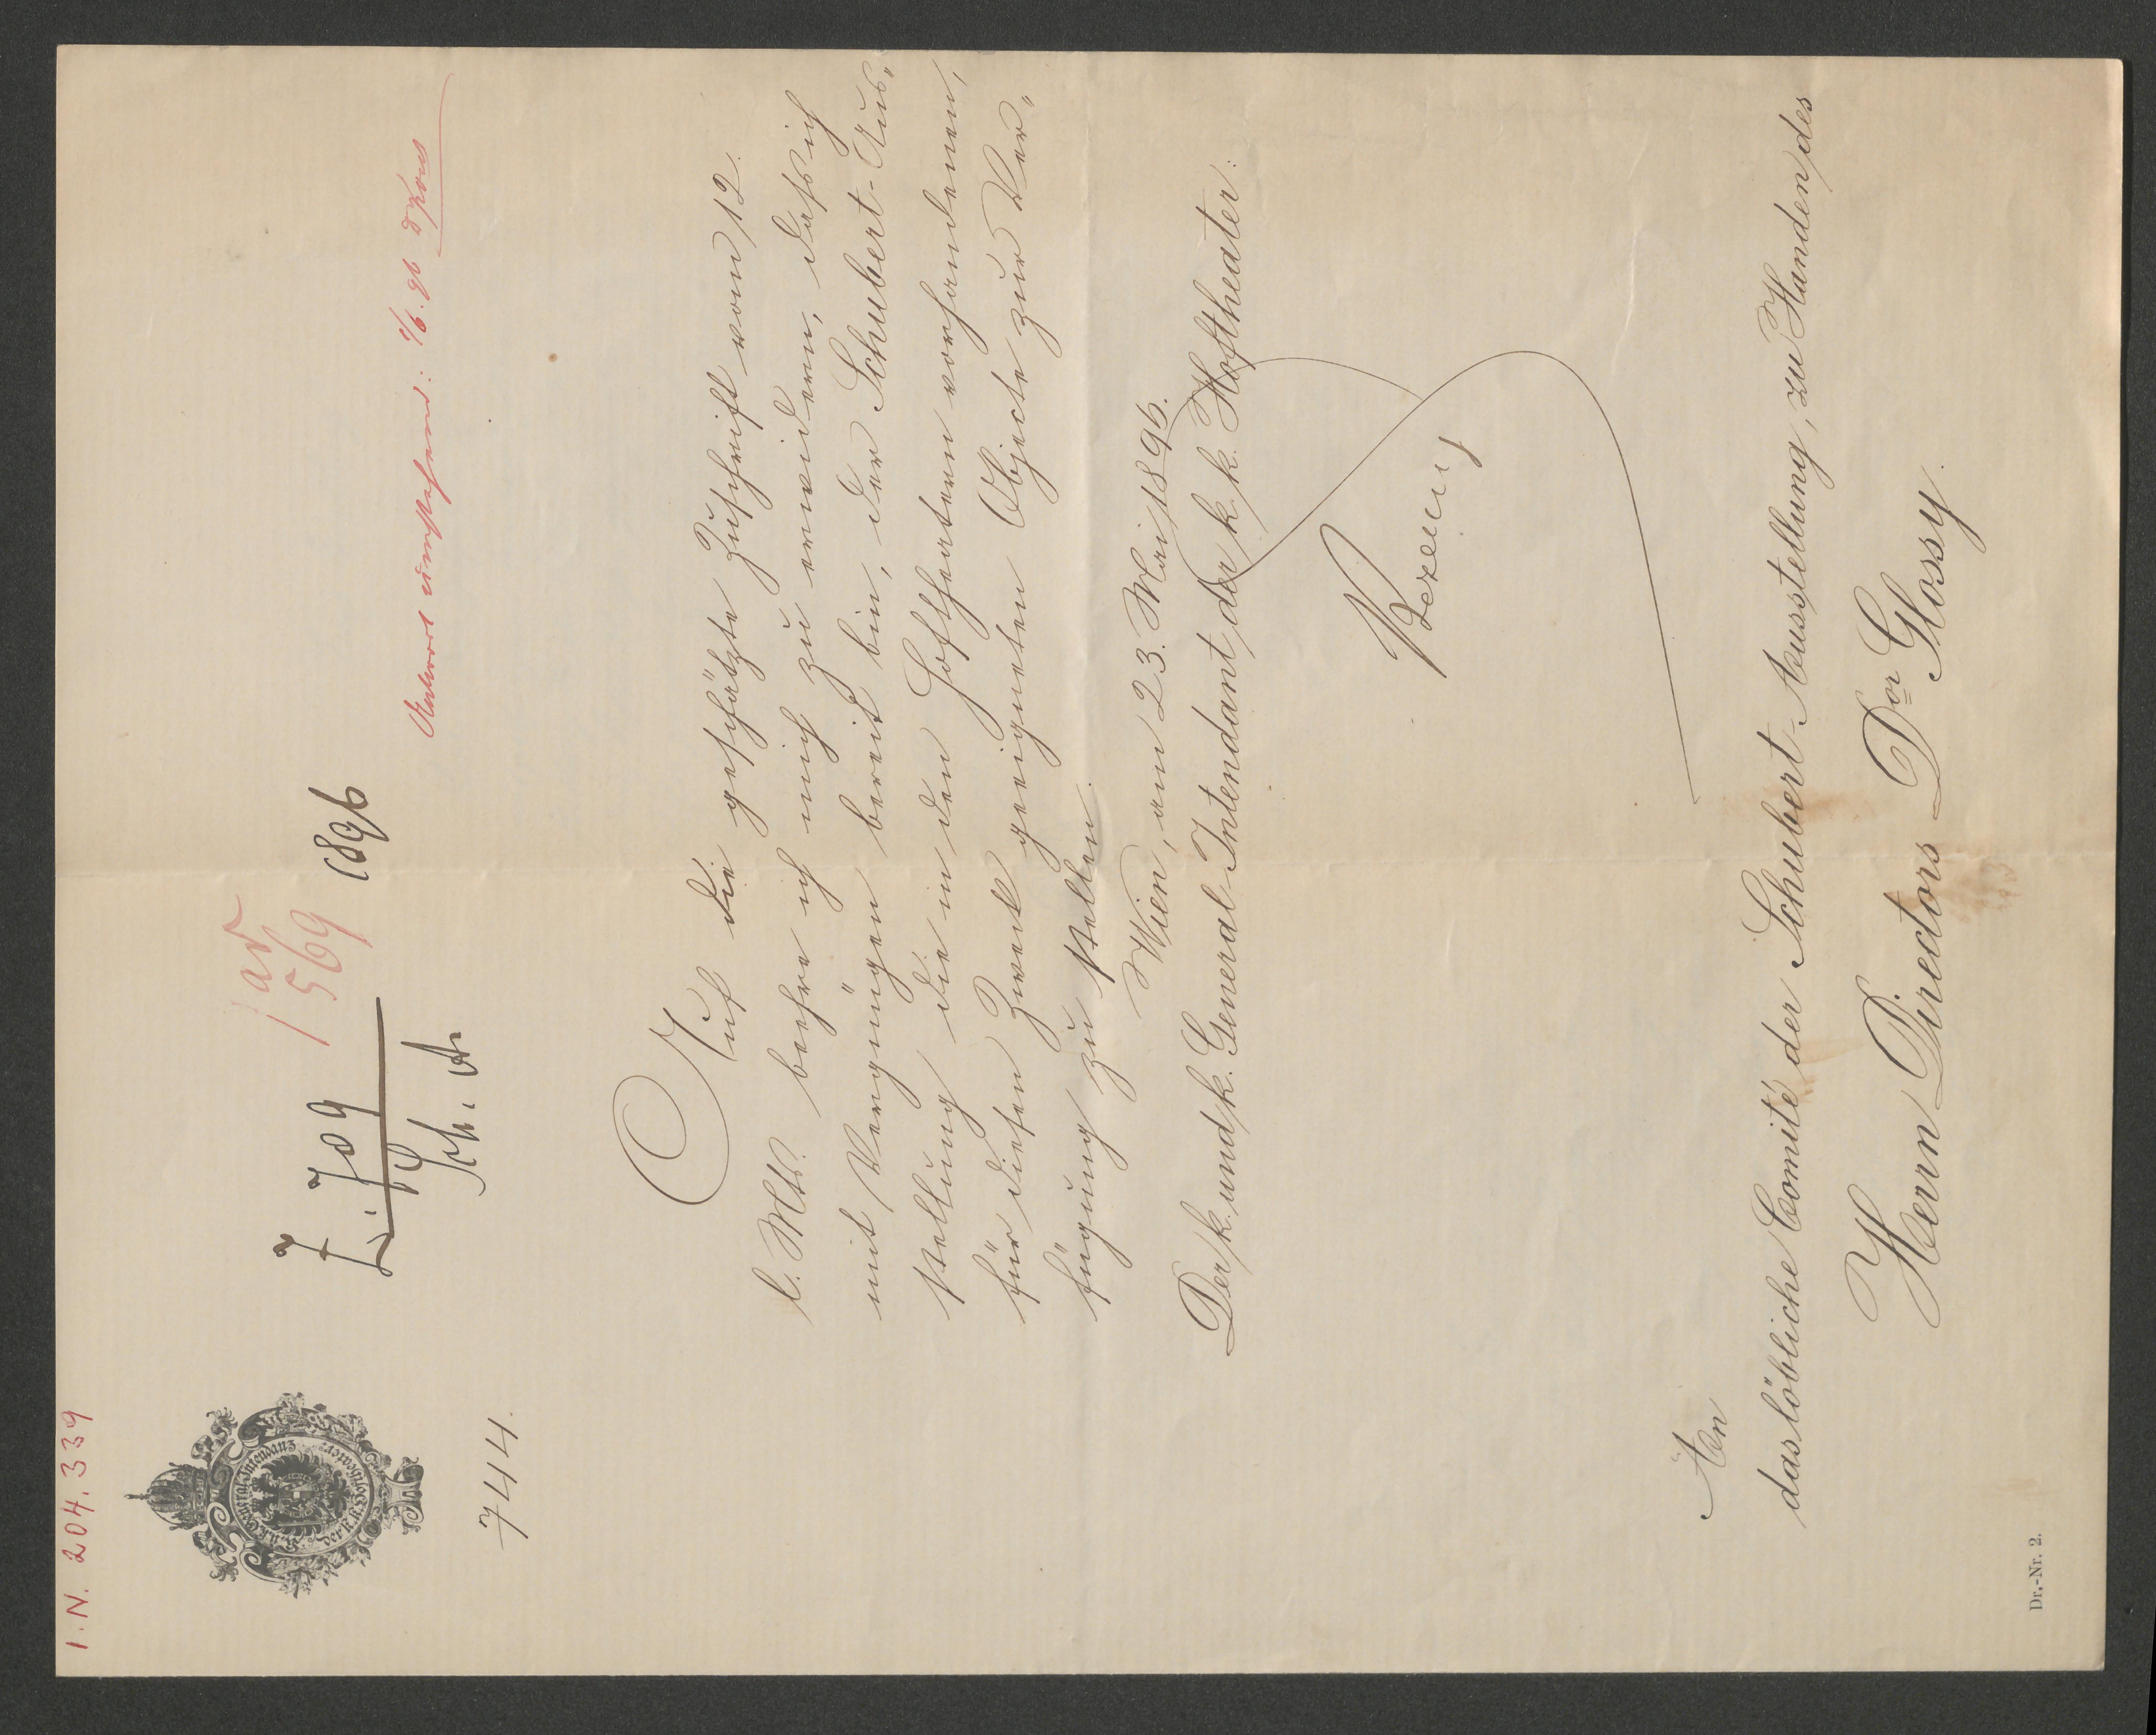 I.N. 204.339
K. u. K. General-Intendanz
der K. K. Hoftheater
ad
569
Z. 789 1896
Sch. A.
744.
Antwort : 1/6. 96
Auf die geschätzte Zuschrift vom 12.
l. Mts. beehre ich mich zu erwidern, dass ich
mit Vergnügen bereit bin, der Schubert-Aus„
stellung die in den Hoftheatern vorhandenen,
für diesen Zweck geeigneten Objecte zur Ver„
fügung zu stellen.
Wien, am 23. Mai 1896.
Der k. und k. General-Intendant der k. k. Hoftheater:
Bezecny
An
das löbliche Comité der Schubert-Ausstellung, zu Handen des
Herrn Directors Dor Glossy.
Dr.-Nr. 2.